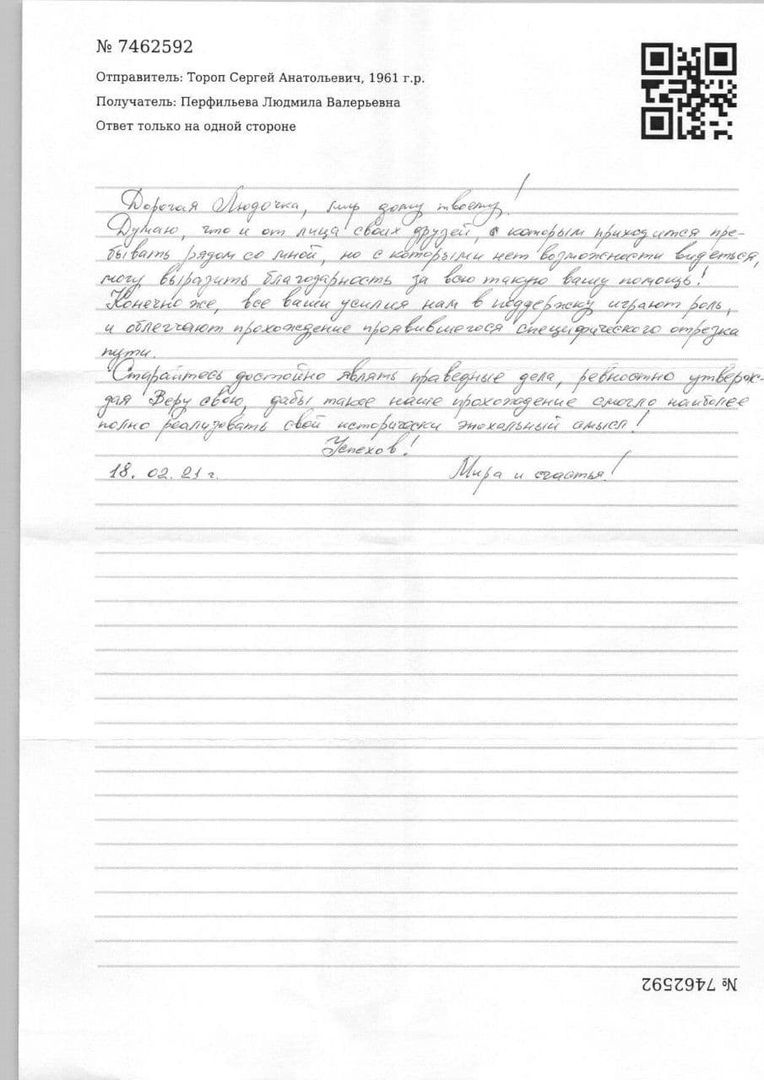 № 7462592
Отправитель: Тороп Сергей Анатольевич, 1961 г.р.
Получатель: Перфильева Людмила Валерьевна
Ответ только на одной стороне
Дорогая Людочка, мир дому твоему!
Думаю, что и от лица своих друзей, с которым приходится пре-
бывать рядом со мной, но с которыми нет возможности видеться,
могу выразить благодарность за всю такую вашу помощь!
Конечно же, все ваши усилия нам в поддержку играют роль,
и облегчают прохождение проявившегося специфического отрезка
пути.
Старайтесь достойно являть праведные дела, ревностно утверж-
дая Веру свою, дабы такое наше прохождение смогло наиболее
полно реализовать свой исторически эпохальный смысл!
Успехов!
18. 02. 21 г. Мира и счастья!
№ 7462592